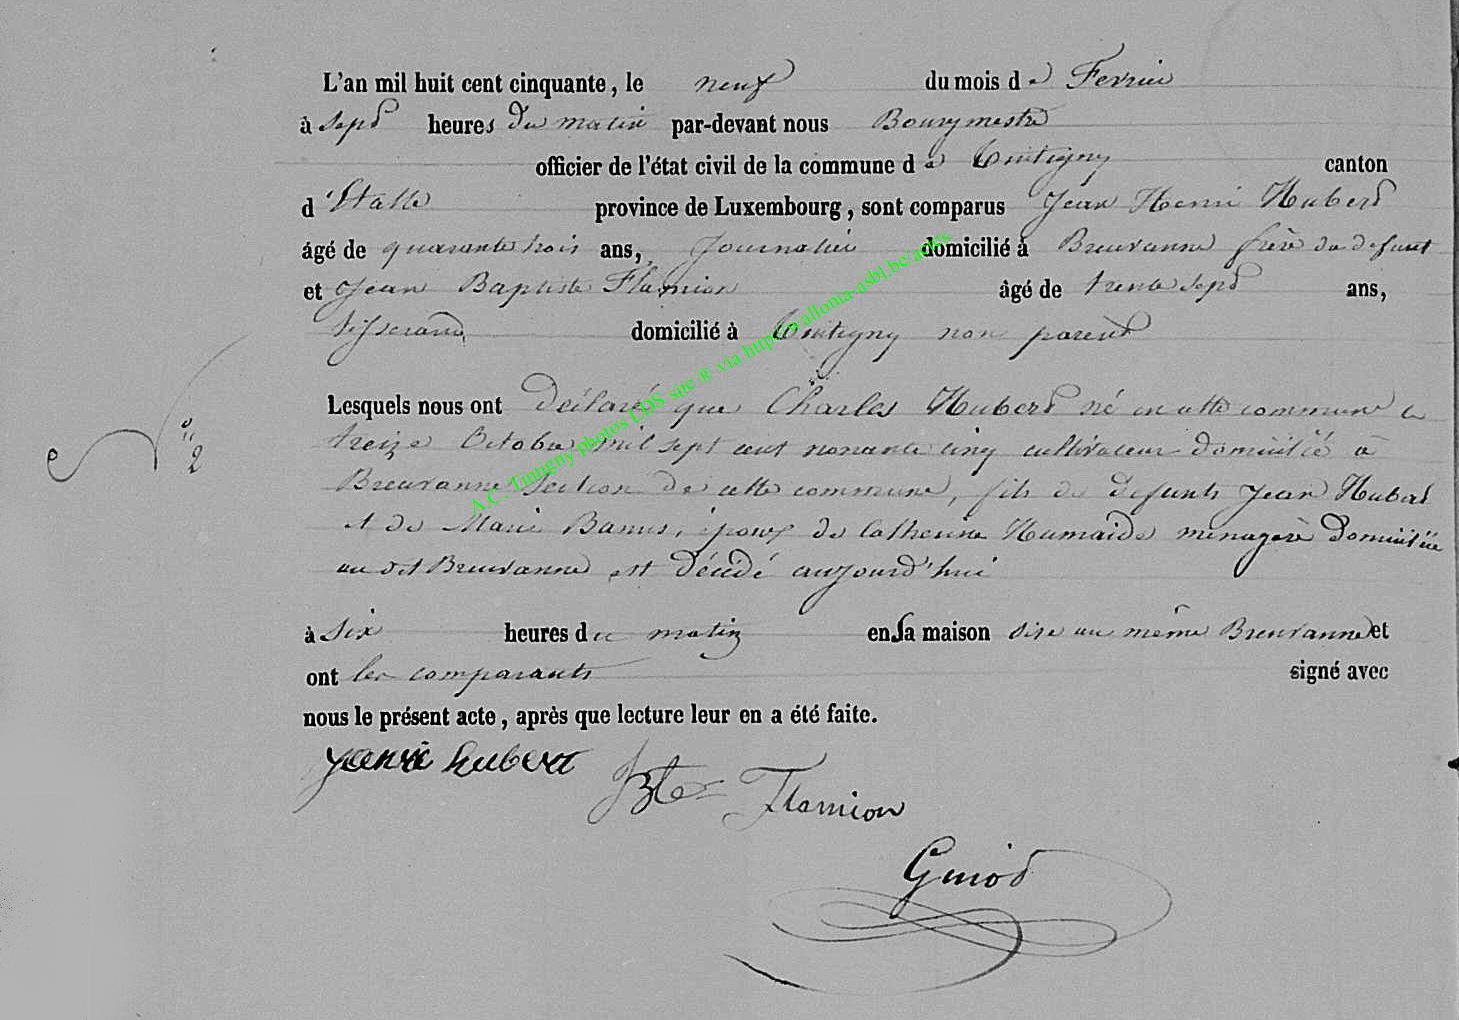 L'an mil huit cent cinquante, le neuf du mois de Fevrier
à sept heures du matin par-devant nous Bourgmestre
officier de l'état civil de la commune de Tintigny canton
d'Etalle province de Luxembourg, sont comparus Jean Henri Hubert
âgé de quarante trois ans, Journalier domicilié à Breuvanne frère du defunt
et Jean Baptiste Flamion âgé de trente sept ans,
tisserand domicilié à Tintigny non parent
Lesquels nous ont déclaré que Charles Hubert né en cette commune le
N° 2
treize Octobre mil sept cent nonante cinq cultivateur domicilié à
Breuvanne section de cette commune, fils de defunts Jean Hubert
et de Marie epoux de Catherine Humaide menagère domiciliée
au dit Breuvanne est décédé aujourd'hui
à six heures du matin en sa maison sise au même Breuvanne et
ont les comparants signé avec
nous le présent acte, après que lecture leur en a été faite.
hubert
Flamion
Guiot
A.C. Tintigny photos LDS site ® via http://wallonia-asbl.be/actes